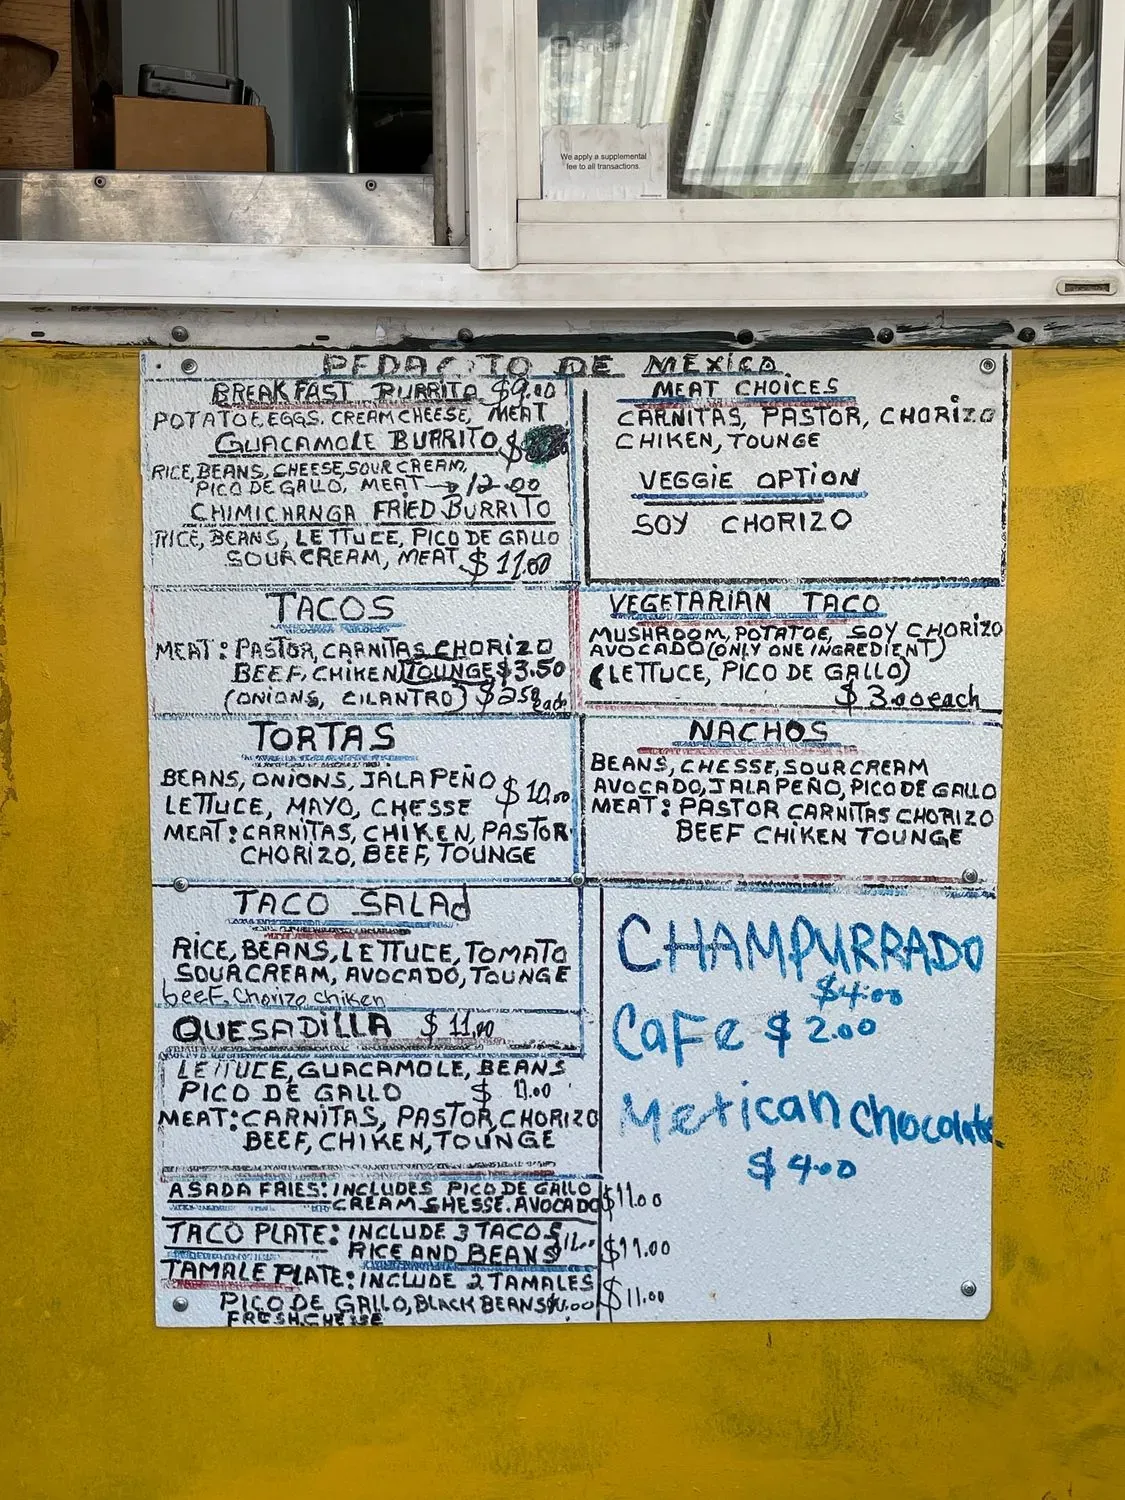 Square
We apply a supplemental
fee to all transactions.
PEDACITO DE MEXICO
BREAKFAST BURRITO $9.00
POTATOE,EGGS, CREAM CHEESE, MEAT
GUACAMOLE BURRITO $
RICE, BEANS, CHEESE, SOUR CREAM,
PICO DE GALLO, MEAT → 12.00
CHIMICHANGA FRIED BURRITO
RICE, BEANS, LETTUCE, PICO DE GALLO
SOUR CREAM, MEAT $ 11.00
MEAT CHOICES
CARNITAS, PASTOR, CHORIZO
CHIKEN, TOUNGE
VEGGIE OPTION
SOY CHORIZO
TACOS
MEAT: PASTOR, CARNITAS, CHORIZO
BEEF, CHIKEN TOUNGE $3.50
(ONIONS, CILANTRO) $2.50 each
VEGETARIAN TACO
MUSHROOM, POTATOE, SOY CHORIZO
AVOCADO (ONLY ONE INGREDIENT)
(LETTUCE, PICO DE GALLO)
$ 3.00 each
TORTAS
BEANS, ONIONS, JALAPEÑO $ 10.00
LETTUCE, MAYO, CHESSE
MEAT: CARNITAS, CHIKEN, PASTOR
CHORIZO, BEEF, TOUNGE
NACHOS
BEANS, CHESSE, SOUR CREAM
AVOCADO, JALAPEÑO, PICO DE GALLO
MEAT: PASTOR CARNITAS CHORIZO
BEEF CHIKEN TOUNGE
TACO SALAd
RICE, BEANS, LETTUCE, TOMATO
SOUR CREAM, AVOCADO, TOUNGE
beeF, Chorizo, chiken
QUESADILLA $ 11.00
LETTUCE, GUACAMOLE, BEANS
PICO DE GALLO $ 11.00
MEAT: CARNITAS, PASTOR, CHORIZO
BEEF, CHIKEN, TOUNGE
CHAMPURRADO
$4.00
CaFe $ 2.00
Mexican chocolate
$ 4.00
ASADA FRIES: INCLUDES PICO DE GALLO
CREAM, CHESSE. AVOCADO $11.00
TACO PLATE: INCLUDE 3 TACOS
RICE AND BEANS $11.00 $11.00
TAMALE PLATE: INCLUDE 2 TAMALES
PICO DE GALLO, BLACK BEANS $11.00 $11.00
FRESH CHESSE